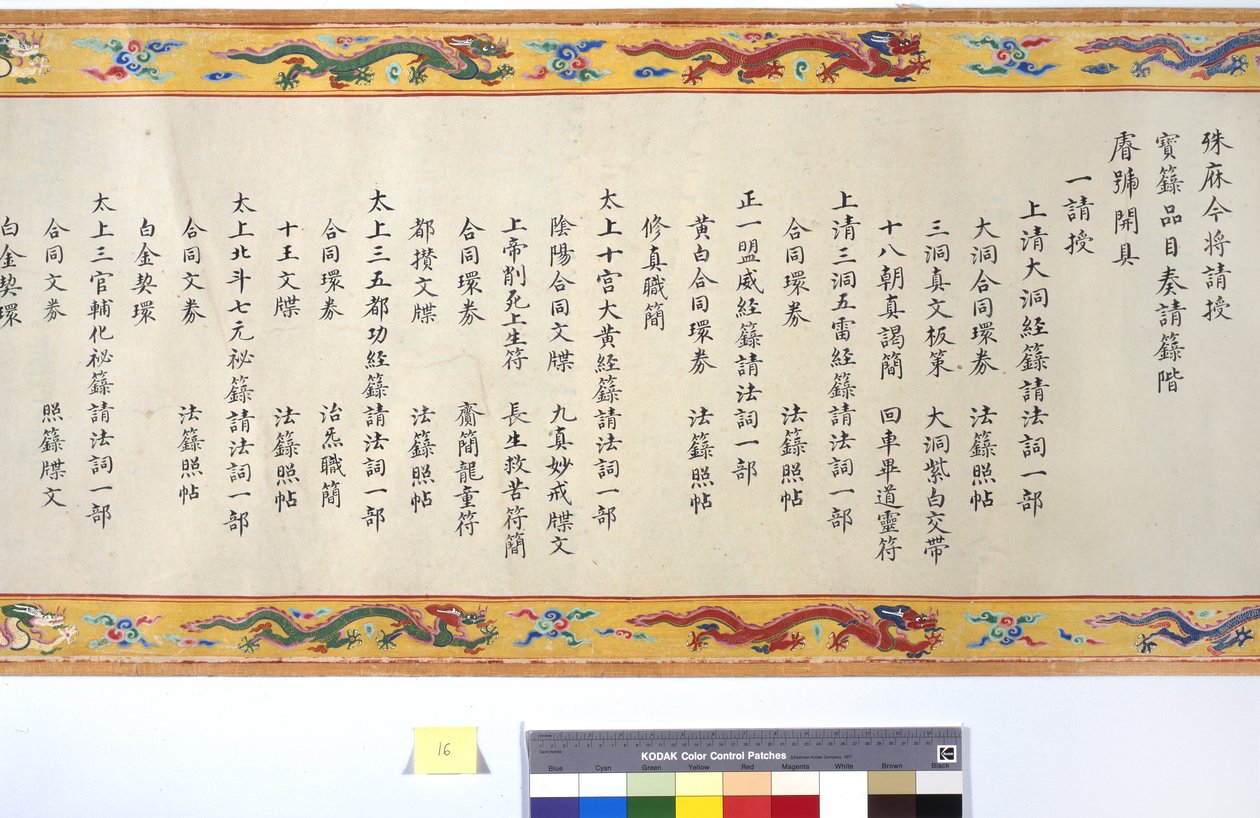 殊庥今将請授
寳籙品目奏請籙階
睿號開具
一請授
上清大洞経籙請法詞一部
大洞合同環券 法籙照帖
三洞真文板策 大洞紫白交帶
十八朝真謁簡 回車畢道靈符
上清三洞五雷経籙請法詞一部
合同環券 法籙照帖
正一盟威経籙請法詞一部
黄白合同環券 法籙照帖
修真職簡
太上十宫大黄経籙請法詞一部
陰陽合同文牒 九真妙戒牒文
上帝削死上生符 長生救苦符簡
合同環券 賫簡龍童符
都攅文牒 法籙照帖
太上三五都功経籙請法詞一部
合同環券 治炁職簡
十王文牒 法籙照帖
太上北斗七元祕籙請法詞一部
合同文券 法籙照帖
白金契環
太上三官輔化祕籙請法詞一部
合同文券 照籙牒文
白金契環
16
KODAK Color Control Patches
Blue Cyan Green Yellow Red Magenta White Brown Black